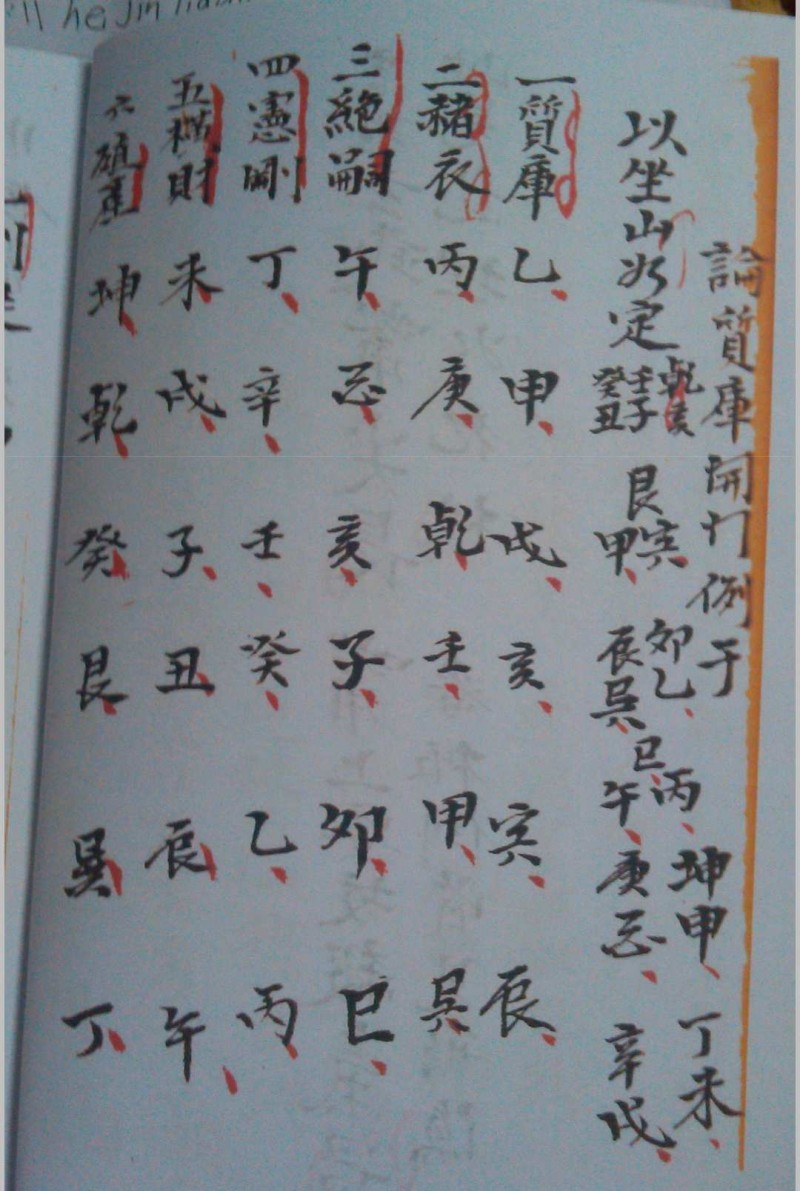 論質庫開門例于
以坐山為定
乾亥
壬子
癸丑
艮寅
甲
卯乙
辰巽
巳丙
午
坤申
庚
丁未
辛戌
一質庫 乙 申 戌 亥 寅 辰
二赭衣 丙 庚 乾 壬 甲 巽
三絕嗣 午 亥 子 卯 巳
四憲剛 丁 辛 壬 癸 乙 丙
五横財 未 戌 子 丑 辰 午
六 坤 乾 癸 艮 巽 丁